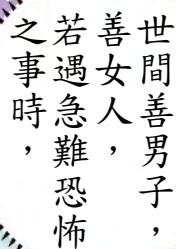 世間善男子，
善女人，
若遇急難恐怖
之事時，